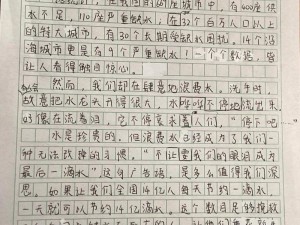 在我国的660座城市中，有400座供
水不足，110座严重缺水，在32个百万人口以上
的特大城市，有30个长期受缺水困扰。14个沿
海城市更是有9个严重缺水！一个个数据，皆
让人看得触目惊心。
然而，我们却在肆意地浪费水。洗手时，
故意把水龙头开得很大，水哗哗不停地流出来
好像在流着泪，它不得停下吧
水是珍贵的。但浪费水已经成为了我们一
种无法改掉的习惯。“不让我们的眼泪成为
最后一滴水”这句广告词，是多么值得我们深
思。如果让我们全国14亿人每天节约一滴水
一天就可以节约14亿滴水。这个数目足够挽救